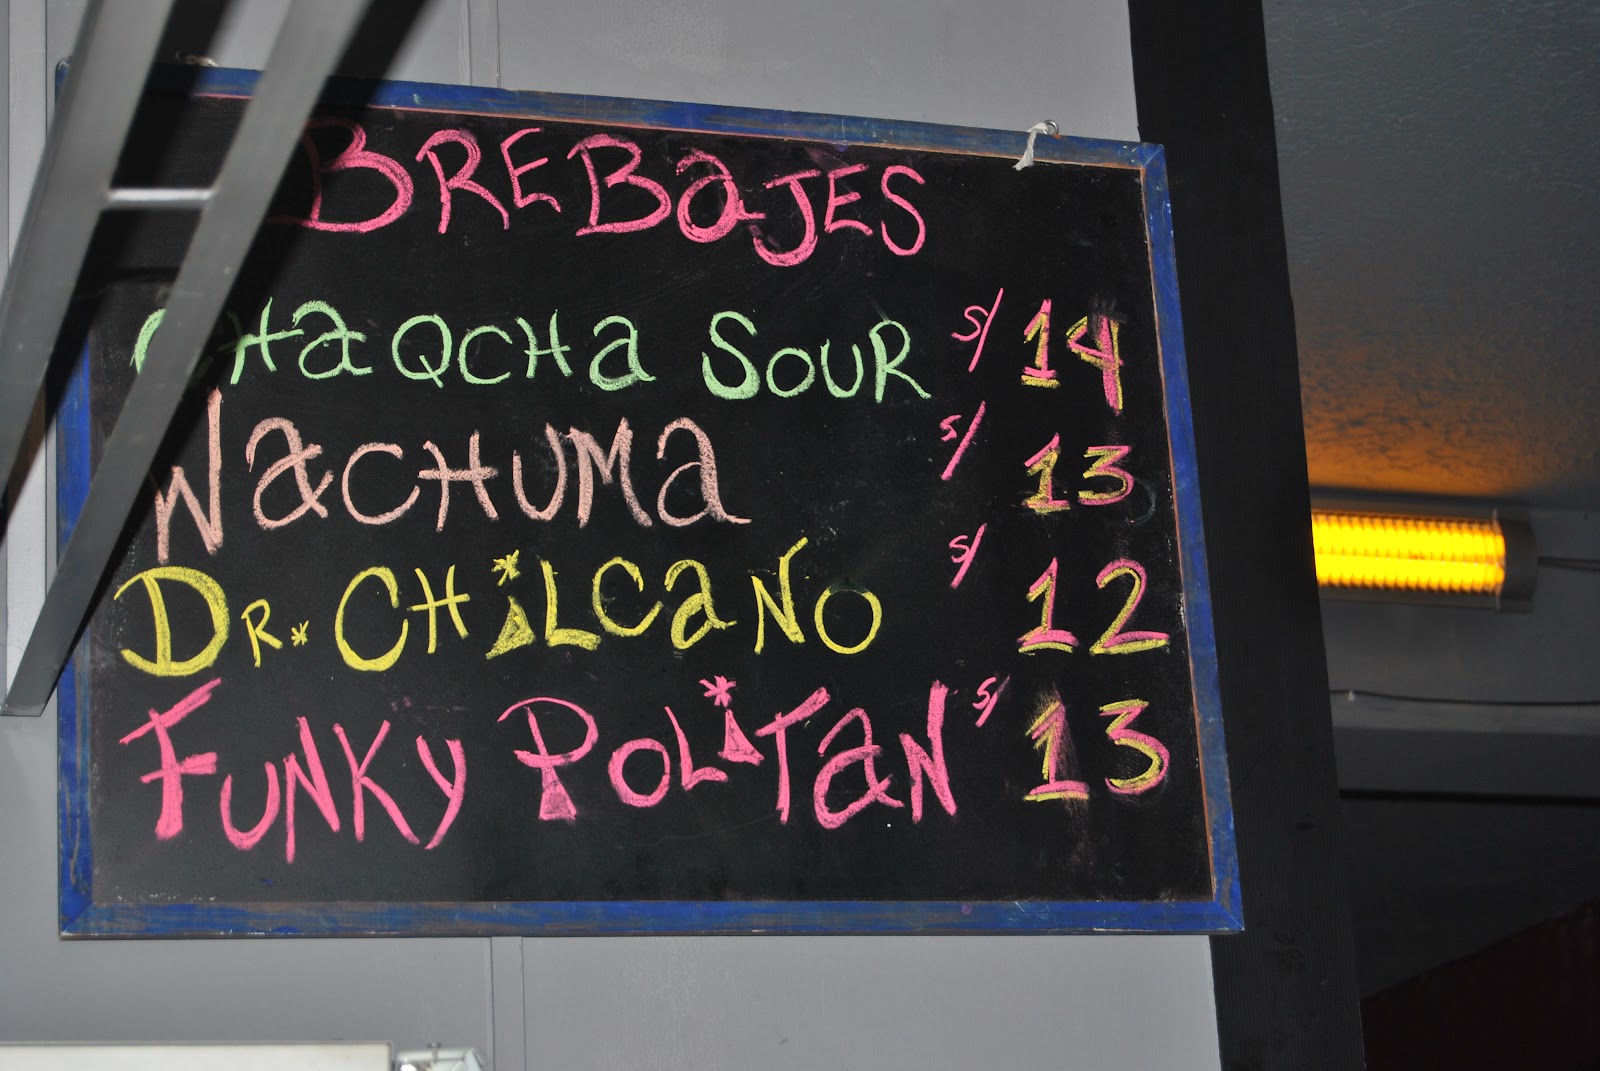 BREBAJES
CHAQCHA SOUR S/ 14
WACHUMA S/ 13
DR. CHILCANO S/ 12
FUNKY POLITAN S/ 13